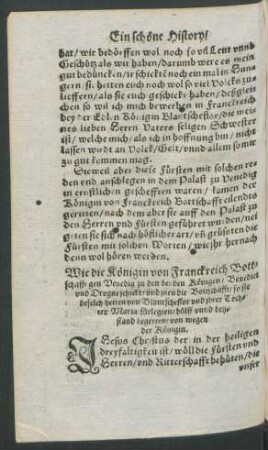 Ein schöne History/
hat/ wir bedörffen wol noch so vil Leut vnnd
Geschütz als wir haben/ darumb were es mein
gut beduncken/ ir schickt noch ein mal in Hun-
gern/ hetten euch noch wol so viel Volcks zu-
lieffern/ als sie euch geschickt haben/ deßglei-
chen so wil ich mich bewerben in Franckreich
bey der Edlen Königin Blantscheflor/ die mei-
nes lieben Herrn Vaters seligen Schwester
ist/ welche mich/ als ich in hoffnung bin/ nicht
lassen wirdt an Volck/ Gelt/ vnnd allem so mir
zu gut kommen mag.
Dieweil aber diese Fürsten mit solchen re-
den vnd anschlegen in dem Palast zu Venedig
in ernstlichen gescheften waren/ kamen der
Königin von Franckreich Bottschafft eilendts
geritten/ nach dem aber sie auff den Palast zu
den Herren vnd Fürsten geführet wurden/ nei-
gten sie sich nach höfflicher art/ vnd grüßten die
Fürsten mit solchen Worten/ wie ihr hernach
denn wol hören werden.
Wie die Königin von Franckreich Bott-
schafft gen Venedig zu den beiden Königen/ Benedict
vnd Drogne schickt/ vnd jnen die Bottschafft/ so sie
befelch hetten von Blantscheflor vnd jhrer Toch-
ter Maria fürlegten/ hülff vnnd bey-
stand begerten/ von wegen
der Königin.
JHesus Christus der in der heiligen
dreyfaltigkeit ist/ wölle die Fürsten vnd
Herren/ vnd Ritterschafft behüten/ die
vnser